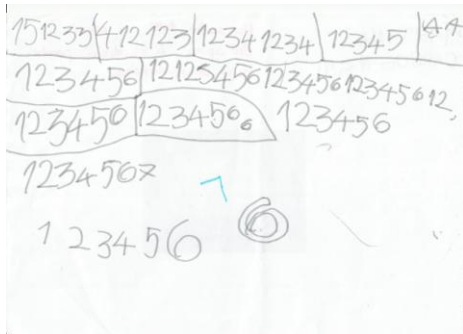 151233 412123 12341234 12345 44
123456 12123456123456123456 12
123456 1234566 123456
1234567
7
1 2 3 4 5 6 6